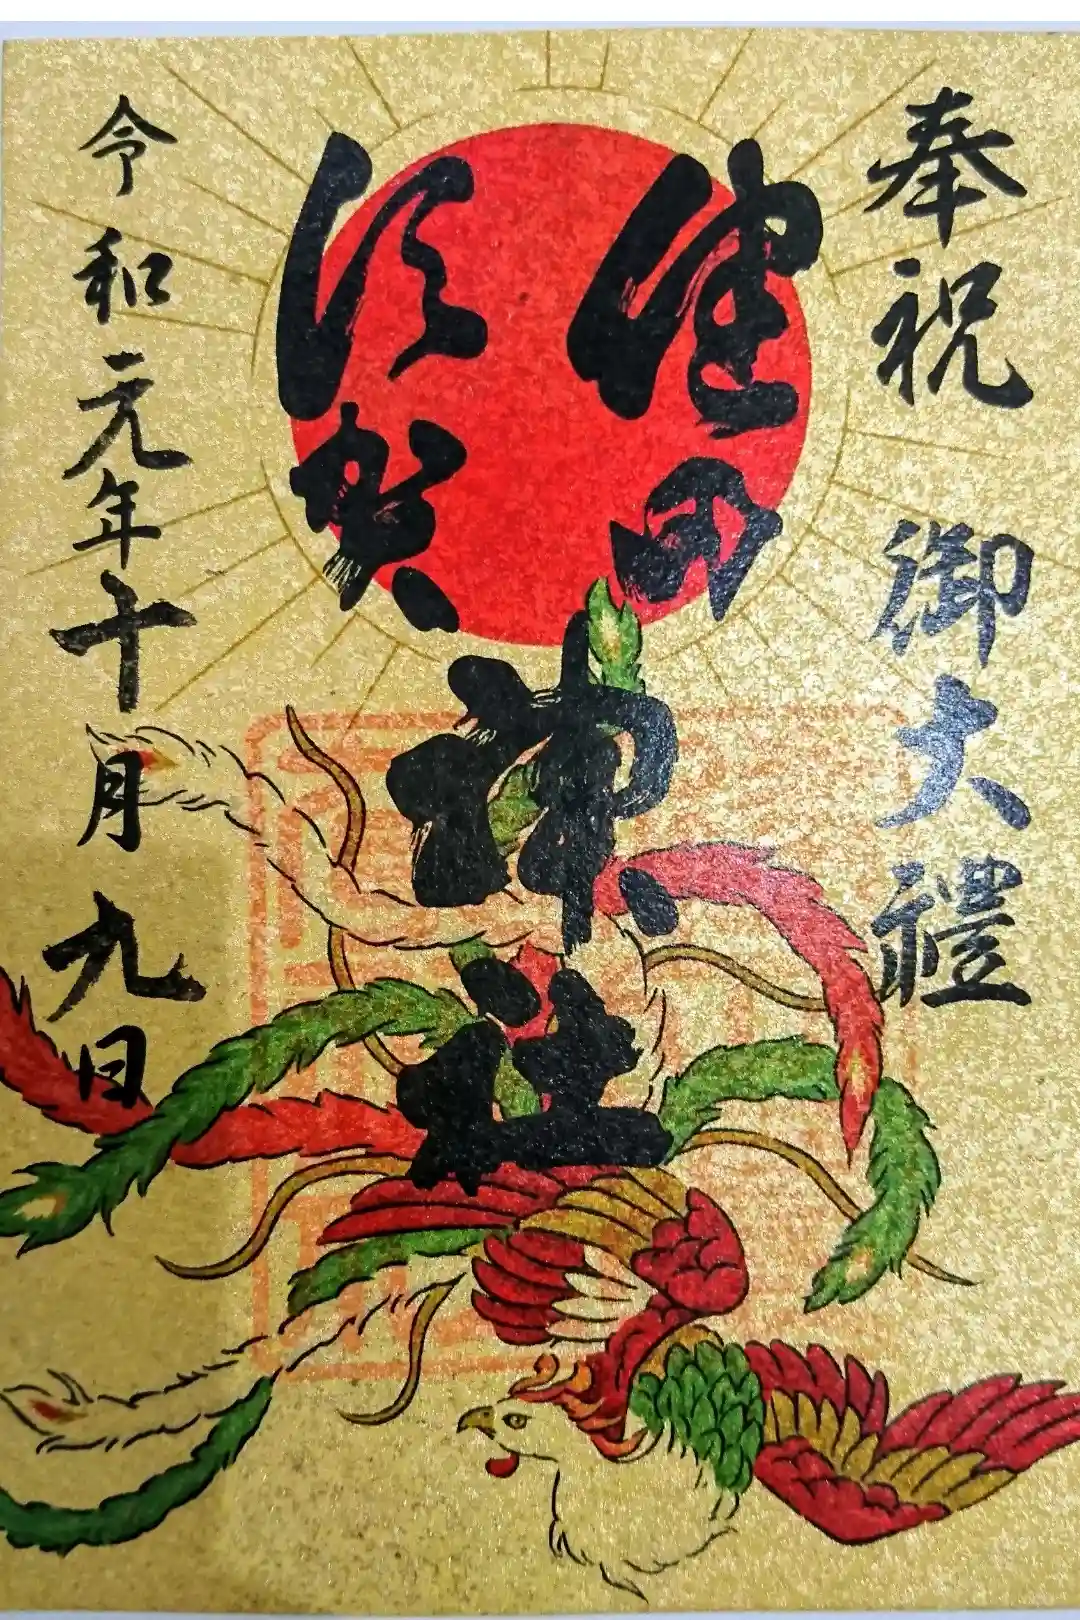 奉祝 御大禮
健田
須賀
神社
令和元年十月九日